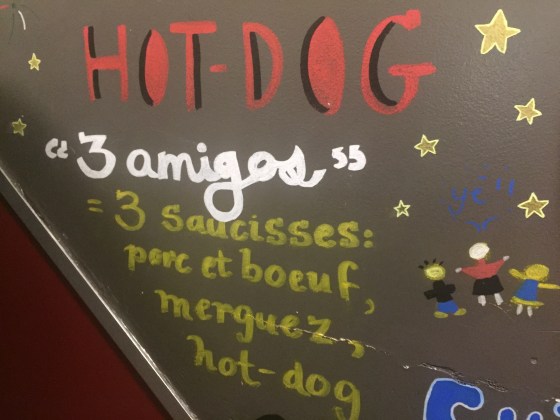 HOT-DOG
“3 amigos”
= 3 saucisses:
porc et boeuf,
merguez,
hot-dog